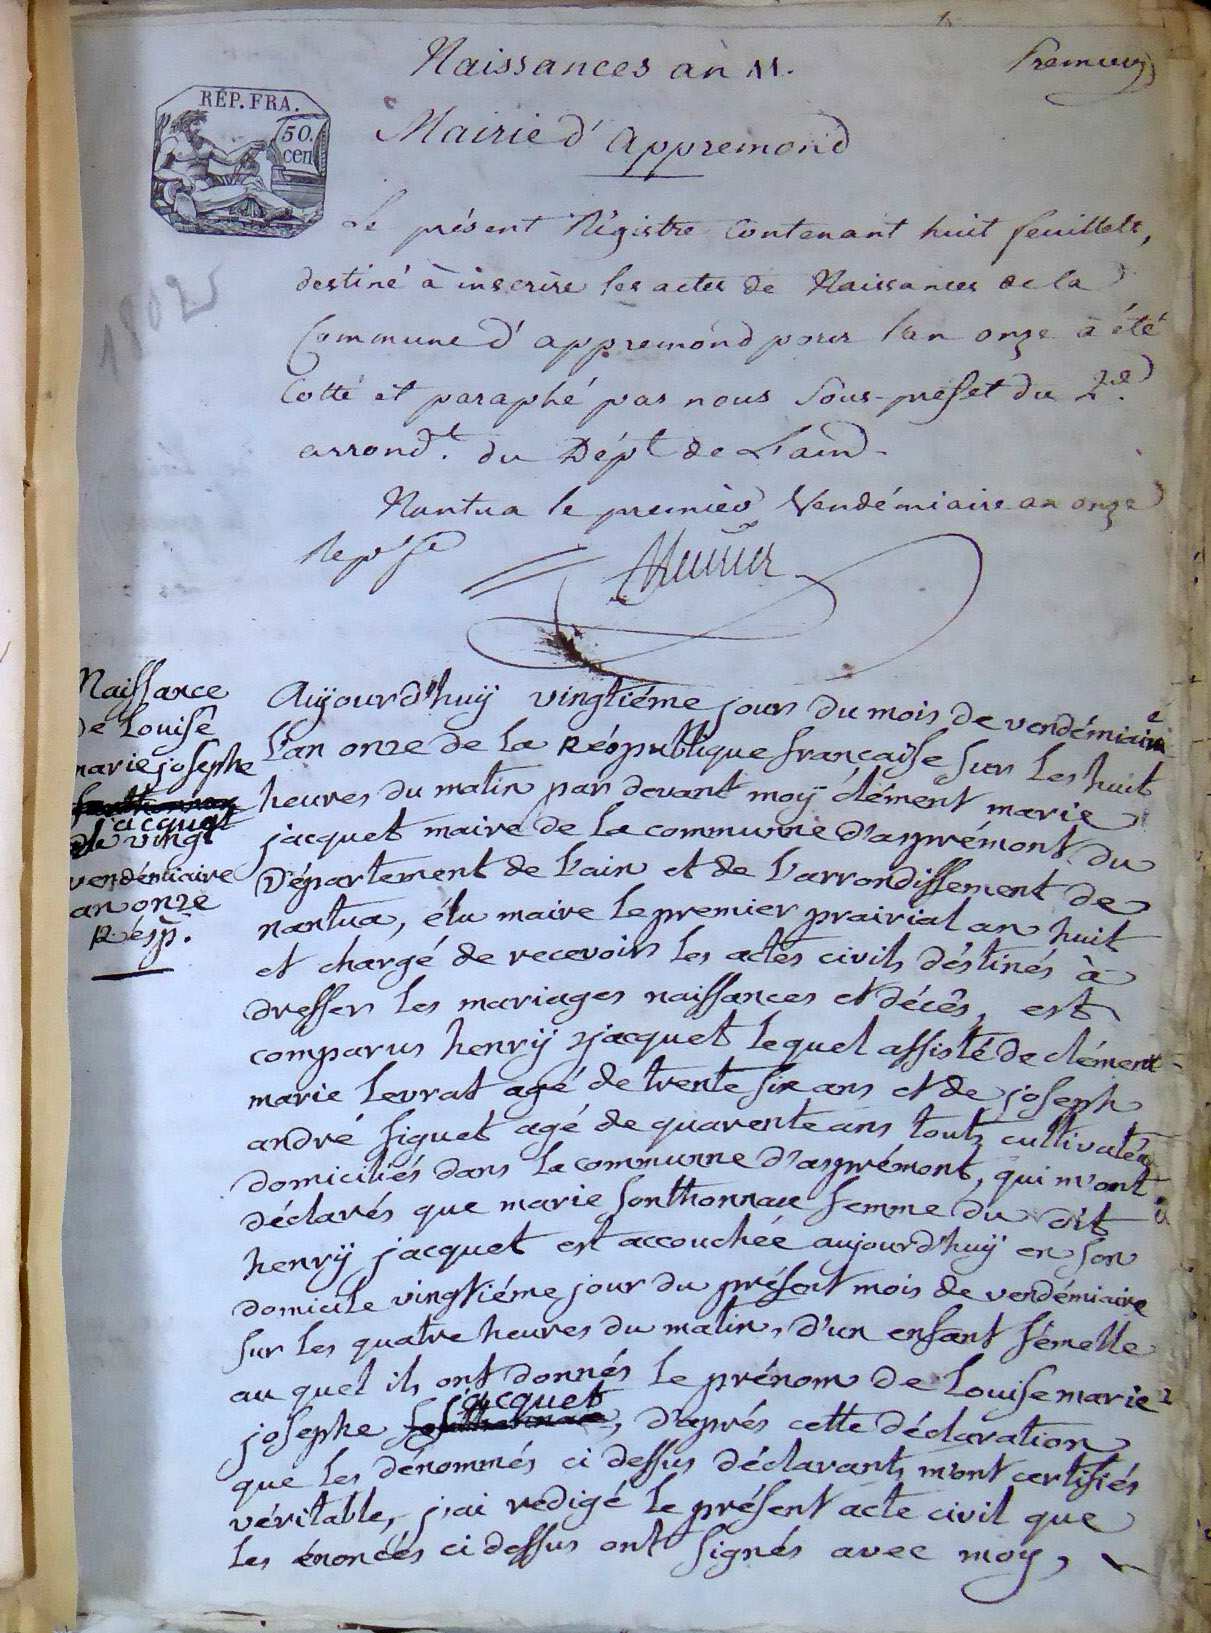 Naissances an 11.
Premier
RÉP. FRA.
50.
cen
Mairie d'appremond
Le présent Régistre Contenant huit feuillets,
destiné à inscrire les actes de Naissances de la
Commune d'appremond pour l'an onze à été
Cotté et paraphé par nous Sous-préfet du 2.d
arrond.t du Dépt de L'ain.
Nantua le premier Vendémiaire an onze
Naissance
de Louise
marie josephe
jacquet
de vingt
vendémiaire
an onze
Résp.
Aujourd'huÿ vingtiéme jour du mois de vendémiaire
L'an onze de La République française sur Les huit
heures du matin par devant moÿ clément marie
jacquet maire de La commune d'asprémont du
Département de L'ain et de L'arrondissement de
nantua, élu maire Le premier prairial an huit
et chargé de recevoir Les actes civils déstinés à
dresser Les mariages naissances et décés, est
comparus henrÿ jacquet Lequel assisté de clément
marie Levrat agé de trente six ans et de joseph
andré figuet agé de quarente ans touts cultivateu
domiciliés dans La commune d'asprémont, qui m'ont
déclarés que marie sonthonnax femme du dit
henrÿ jacquet est accouchée aujourd'huÿ en son
domicile vingtiéme jour du présent mois de vendémiaire
sur Les quatre heures du matin, d'un enfant fémelle
au quel ils ont donnés Le prénom de Louise marie
josephe jacquet, d'aprés cette déclaration
que Les dénommés ci dessus déclarants m'ont certifiés
véritable, j'ai redigé Le présent acte civil que
Les énoncés ci dessus ont signés avec moy,